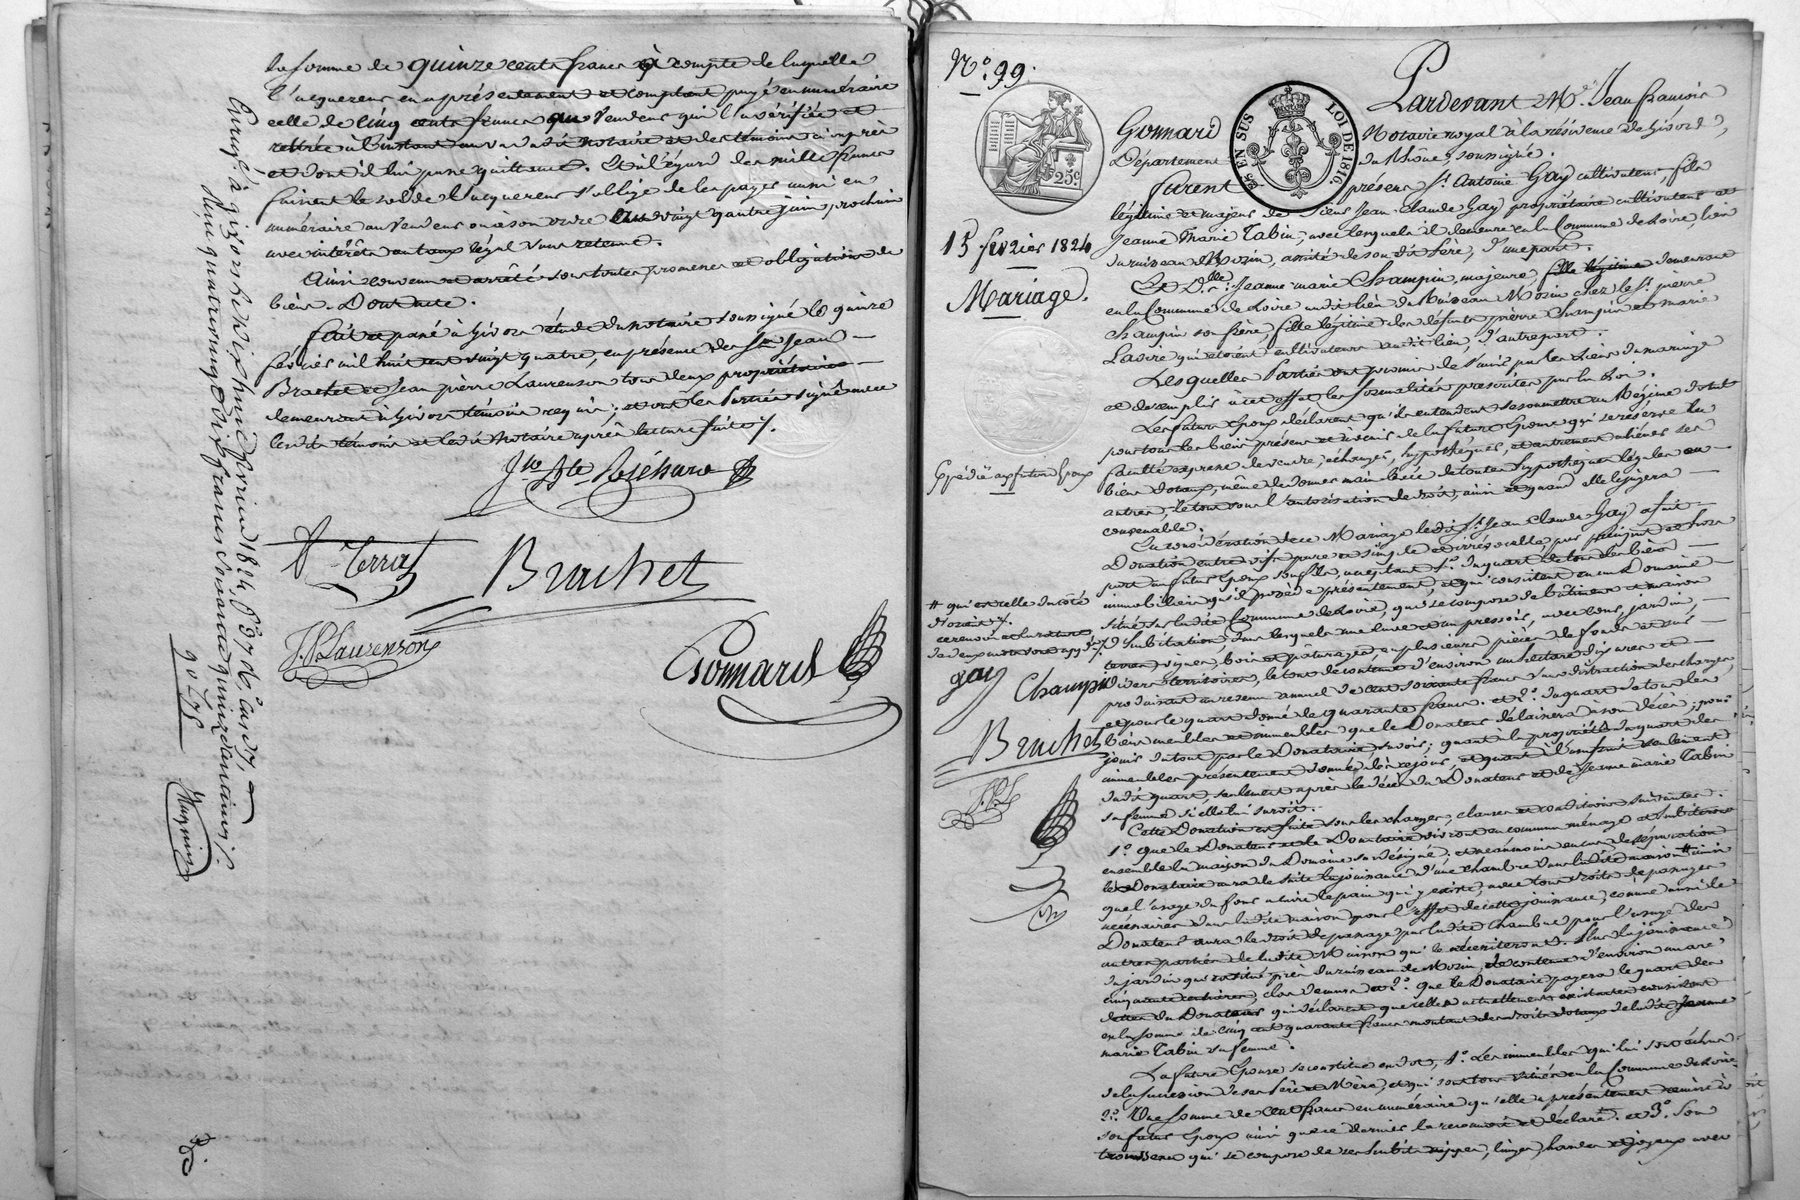 la somme de quinze cents francs à compte de laquelle
l'acquéreur en a présentement et comptant payé en numéraire
celle de cinq cents francs au vendeur qui l'a vérifiée et
retirée à l'instant au vu dudit notaire et des témoins ci après
et dont il lui passe quittance. Et à l'égard des mille francs
faisant le solde l'acquéreur s'oblige de les payer aussi en
numéraire au vendeur ou à son ordre au vingt quatre juin prochain
avec intérêts au taux légal sans retenue.
Ainsi convenu et arrêté sous toutes promesses et obligations de
biens. Dont acte.
Fait et passé à Givors étude du notaire soussigné le quinze
février mil huit cent vingt quatre, en présence des Srs Jean
Brachet et Jean pierre Laurenson tous deux propriétaires
demeurant à Givors témoins requis; et ont les Parties signé avec
lesdits témoins et ledit Notaire après lecture faite.
Terras
Brachet
J. P. Laurenson
Gonnard
Enreg.é à givors le dix huit février 1824, f.o 37 v.o c.
reçu quatre vingt dix francs soixante quinze centimes
90 75
N.o 99.
15 février 1824
Mariage.
25c
25 EN SUS
LOI DE 1816
Pardevant M.e Jean françois
Gonnard Notaire royal à la résidence de Givors,
Département du Rhône, soussigné.
furent présens S.r Antoine Gay cultivateur, fils
légitime et majeur de Sieur Jean Claude Gay propriétaire cultivateur et
Jeanne Marie Tabin, avec lesquels il demeure en la Commune de Loire, lieu
du ruisseau de Mozin, assisté de son dit Père, d'une part.
Et D.lle Jeanne marie Champin, majeure, fille légitime demeurant
en la Commune de Loire au dit lieu du Ruisseau Mozin chez le S.r pierre
Champin son frère, fille légitime des défunts pierre Champin et marie
qui étoient cultivateurs audit lieu, d'autre part.
Lesquelles Parties ont promis de s'unir par les liens du mariage
et de remplir à cet effet les formalités prescrites par la Loi.
Les futurs Epoux déclarent qu'ils entendent se soumettre au Régime dotal
pour tous les biens présens et à venir de la future Epouse qui se réserve la
faculté expresse de vendre, échanger, hypothéquer, et autrement aliéner ses
biens dotaux, même de donner main levée de toutes hypothèques légales ou
autres, le tout sous l'autorisation de droit, ainsi et quand elle le jugera
convenable.
Expédié aux futurs Epoux
En considération de ce Mariage ledit S.r Jean Claude Gay a fait
Donation entre vifs pure et simple et irrévocable par préciput et hors
part au futur Epoux son fils, acceptant 1.o du quart de tous les biens
immobiliers qu'il possède présentement, et qui consistent en un Domaine
situé sur ladite Commune de Loire, qui se compose de bâtimens et maison
d'habitation, dans lesquels une cuve et un pressoir, avec cour, jardin,
terres, vignes, bois et pâturages, en plusieurs pièces de fonds et sur
divers territoires, le tout de contenue d'environ un hectare dix ares et
produisant un revenu annuel de cent soixante francs sans distraction des charges,
et pour le quart donné de quarante francs. et 2.o du quart de tous les
biens meubles et immeubles que le Donateur délaissera à son décès; pour
jouir du tout par le Donataire savoir; quant à la propriété du quart des
immeubles présentement donné dès ce jour, et quant à l'usufruit seulement
dudit quart, seulement après le décès du Donateur et de Jeanne marie Tabin
sa femme si elle lui survit.
# qui est celle du côté
gay Champin
Brachet
J. P. L.
Cette Donation est faite sous les charges, clauses et conditions suivantes.
1.o que le Donateur et le Donataire vivront en commun ménage et habiteront
ensemble la maison du Domaine sus désigné; et néanmoins en cas de séparation
le Donataire aura de suite la jouissance d'une chambre dans ladite maison # ainsi
que l'usage du four à cuire le pain qui y existe, avec tous droits de passages
nécessaires dans ladite maison pour l'effet de cette jouissance; comme aussi le
Donateur aura le droit de passage par ladite Chambre pour l'usage des
autres parties de ladite Maison qui le nécessiteront. Plus la jouissance
du jardin qui est situé près du ruisseau de Mozin, de contenue d'environ un are
cinquante centiares, clos de murs et 2.o que le Donataire payera le quart des
dettes du Donateur qui déclare que celles actuellement existantes consistent
en la somme de cinq cent quarante francs montant des droits dotaux de ladite Jeanne
marie Tabin sa femme.
La future Epouse se constitue en dot, 1.o Les immeubles qui lui sont échus
de la succession de ses Père et Mère, et qui sont tous situés en la Commune de Loire
2.o Une somme de Cent francs en numéraire qu'elle a présentement remise à
son futur Epoux ainsi que ce dernier le reconnoit et déclare. et 3.o Son
trousseau qui se compose de ses habits nippes, linges, hardes et joyaux avec